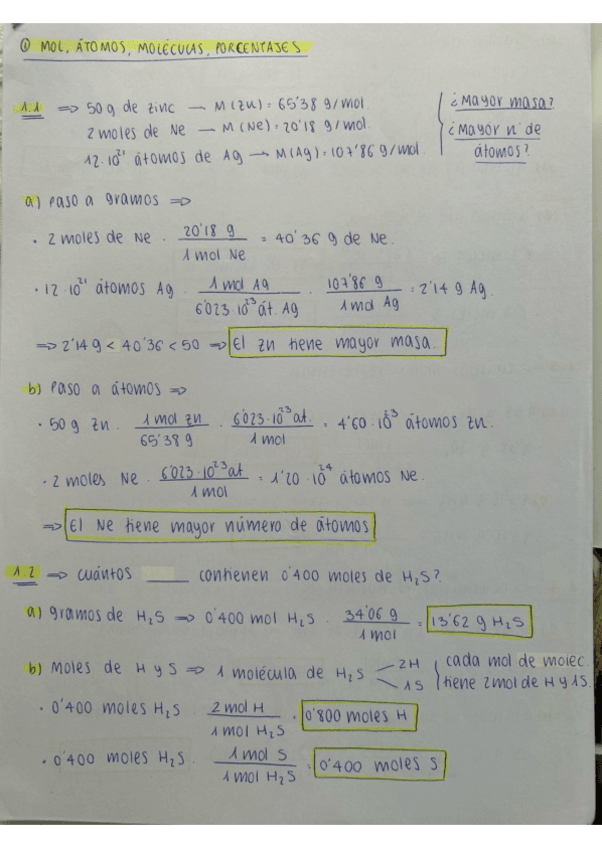 ① MOL, ÁTOMOS, MOLÉCULAS, PORCENTAJES
1.1 ⇒ 50 g de zinc — M(Zn) = 65'38 g/mol.
2 moles de Ne — M(Ne) = 20'18 g/mol.
12·10²¹ átomos de Ag → M(Ag) = 107'86 g/mol.
¿Mayor masa?
¿Mayor nº de
átomos?
a) Paso a gramos ⇒
· 2 moles de Ne · 20'18 g / 1 mol Ne = 40'36 g de Ne.
· 12·10²¹ átomos Ag · 1 mol Ag / 6'023·10²³ át. Ag · 107'86 g / 1 mol Ag = 2'14 g Ag.
⇒ 2'14 g < 40'36 < 50 ⇒ El Zn tiene mayor masa.
b) Paso a átomos ⇒
· 50 g Zn · 1 mol Zn / 65'38 g · 6'023·10²³ at. / 1 mol = 4'60·10²³ átomos Zn.
· 2 moles Ne · 6'023·10²³ at / 1 mol = 1'20·10²⁴ átomos Ne.
⇒ El Ne tiene mayor número de átomos
1.2 ⇒ Cuántos ____ contienen 0'400 moles de H₂S?
a) gramos de H₂S ⇒ 0'400 mol H₂S · 34'06 g / 1 mol = 13'62 g H₂S
b) Moles de H y S ⇒ 1 molécula de H₂S — 2H — 1S
cada mol de molec.
tiene 2 mol de H y 1 S.
· 0'400 moles H₂S · 2 mol H / 1 mol H₂S · 0'800 moles H
· 0'400 moles H₂S · 1 mol S / 1 mol H₂S = 0'400 moles S